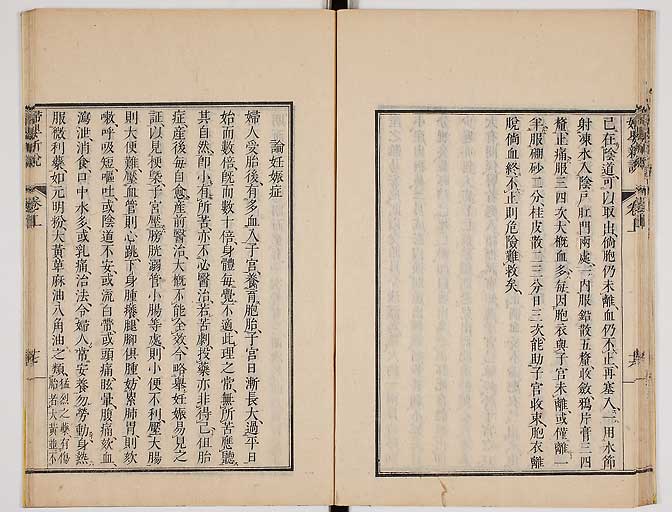 已在陰道可以取出倘胞仍未離血仍不正再塞入一用水節
射凍水入陰戶肛門兩處一內服鉛散五釐收斂鴉片膏三四
釐止痛服三四次大概血多每因胞衣與子宮未離或僅離一
半服硼砂二分桂皮散二三分日三次能助子宮收束胞衣離
脫倘血終不正則危險難救矣
婦嬰新說
卷上
論妊娠症
婦人受胎後有多血入子宮養育胞胎子宮日漸長大過平日
始而數倍旣而數十倍身體每覺不適此理之常無所苦應聽
其自然卽小有所苦亦不必醫治若苦劇投藥亦非得已但胎
症產後每自愈產前醫治大概不能全效今略舉妊娠易見之
証以見梗槩子宮壓膀胱溺管小腸等處則小便不利壓大腸
則大便難壓血管則心跳下身腫癢腿腳俱腫妨累肺胃則欬
嗽呼吸短嘔吐或陰道不安或流白帶或頭痛眩暈腹痛欬血
瀉泄消食口中水多或乳痛治法令婦人常安養勿勞動身熱
服微利藥如元明粉大黃萆麻油八角油之類猛烈之藥有傷胎者大黃並不
婦嬰新說
卷上